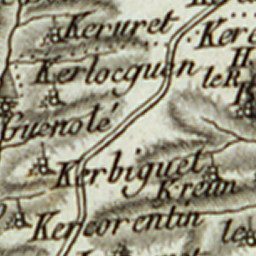 Keruret
Ker
Kerlocquen
le R
H
Guenolé
Kerbiguet
Kreün
Kercorentin
le